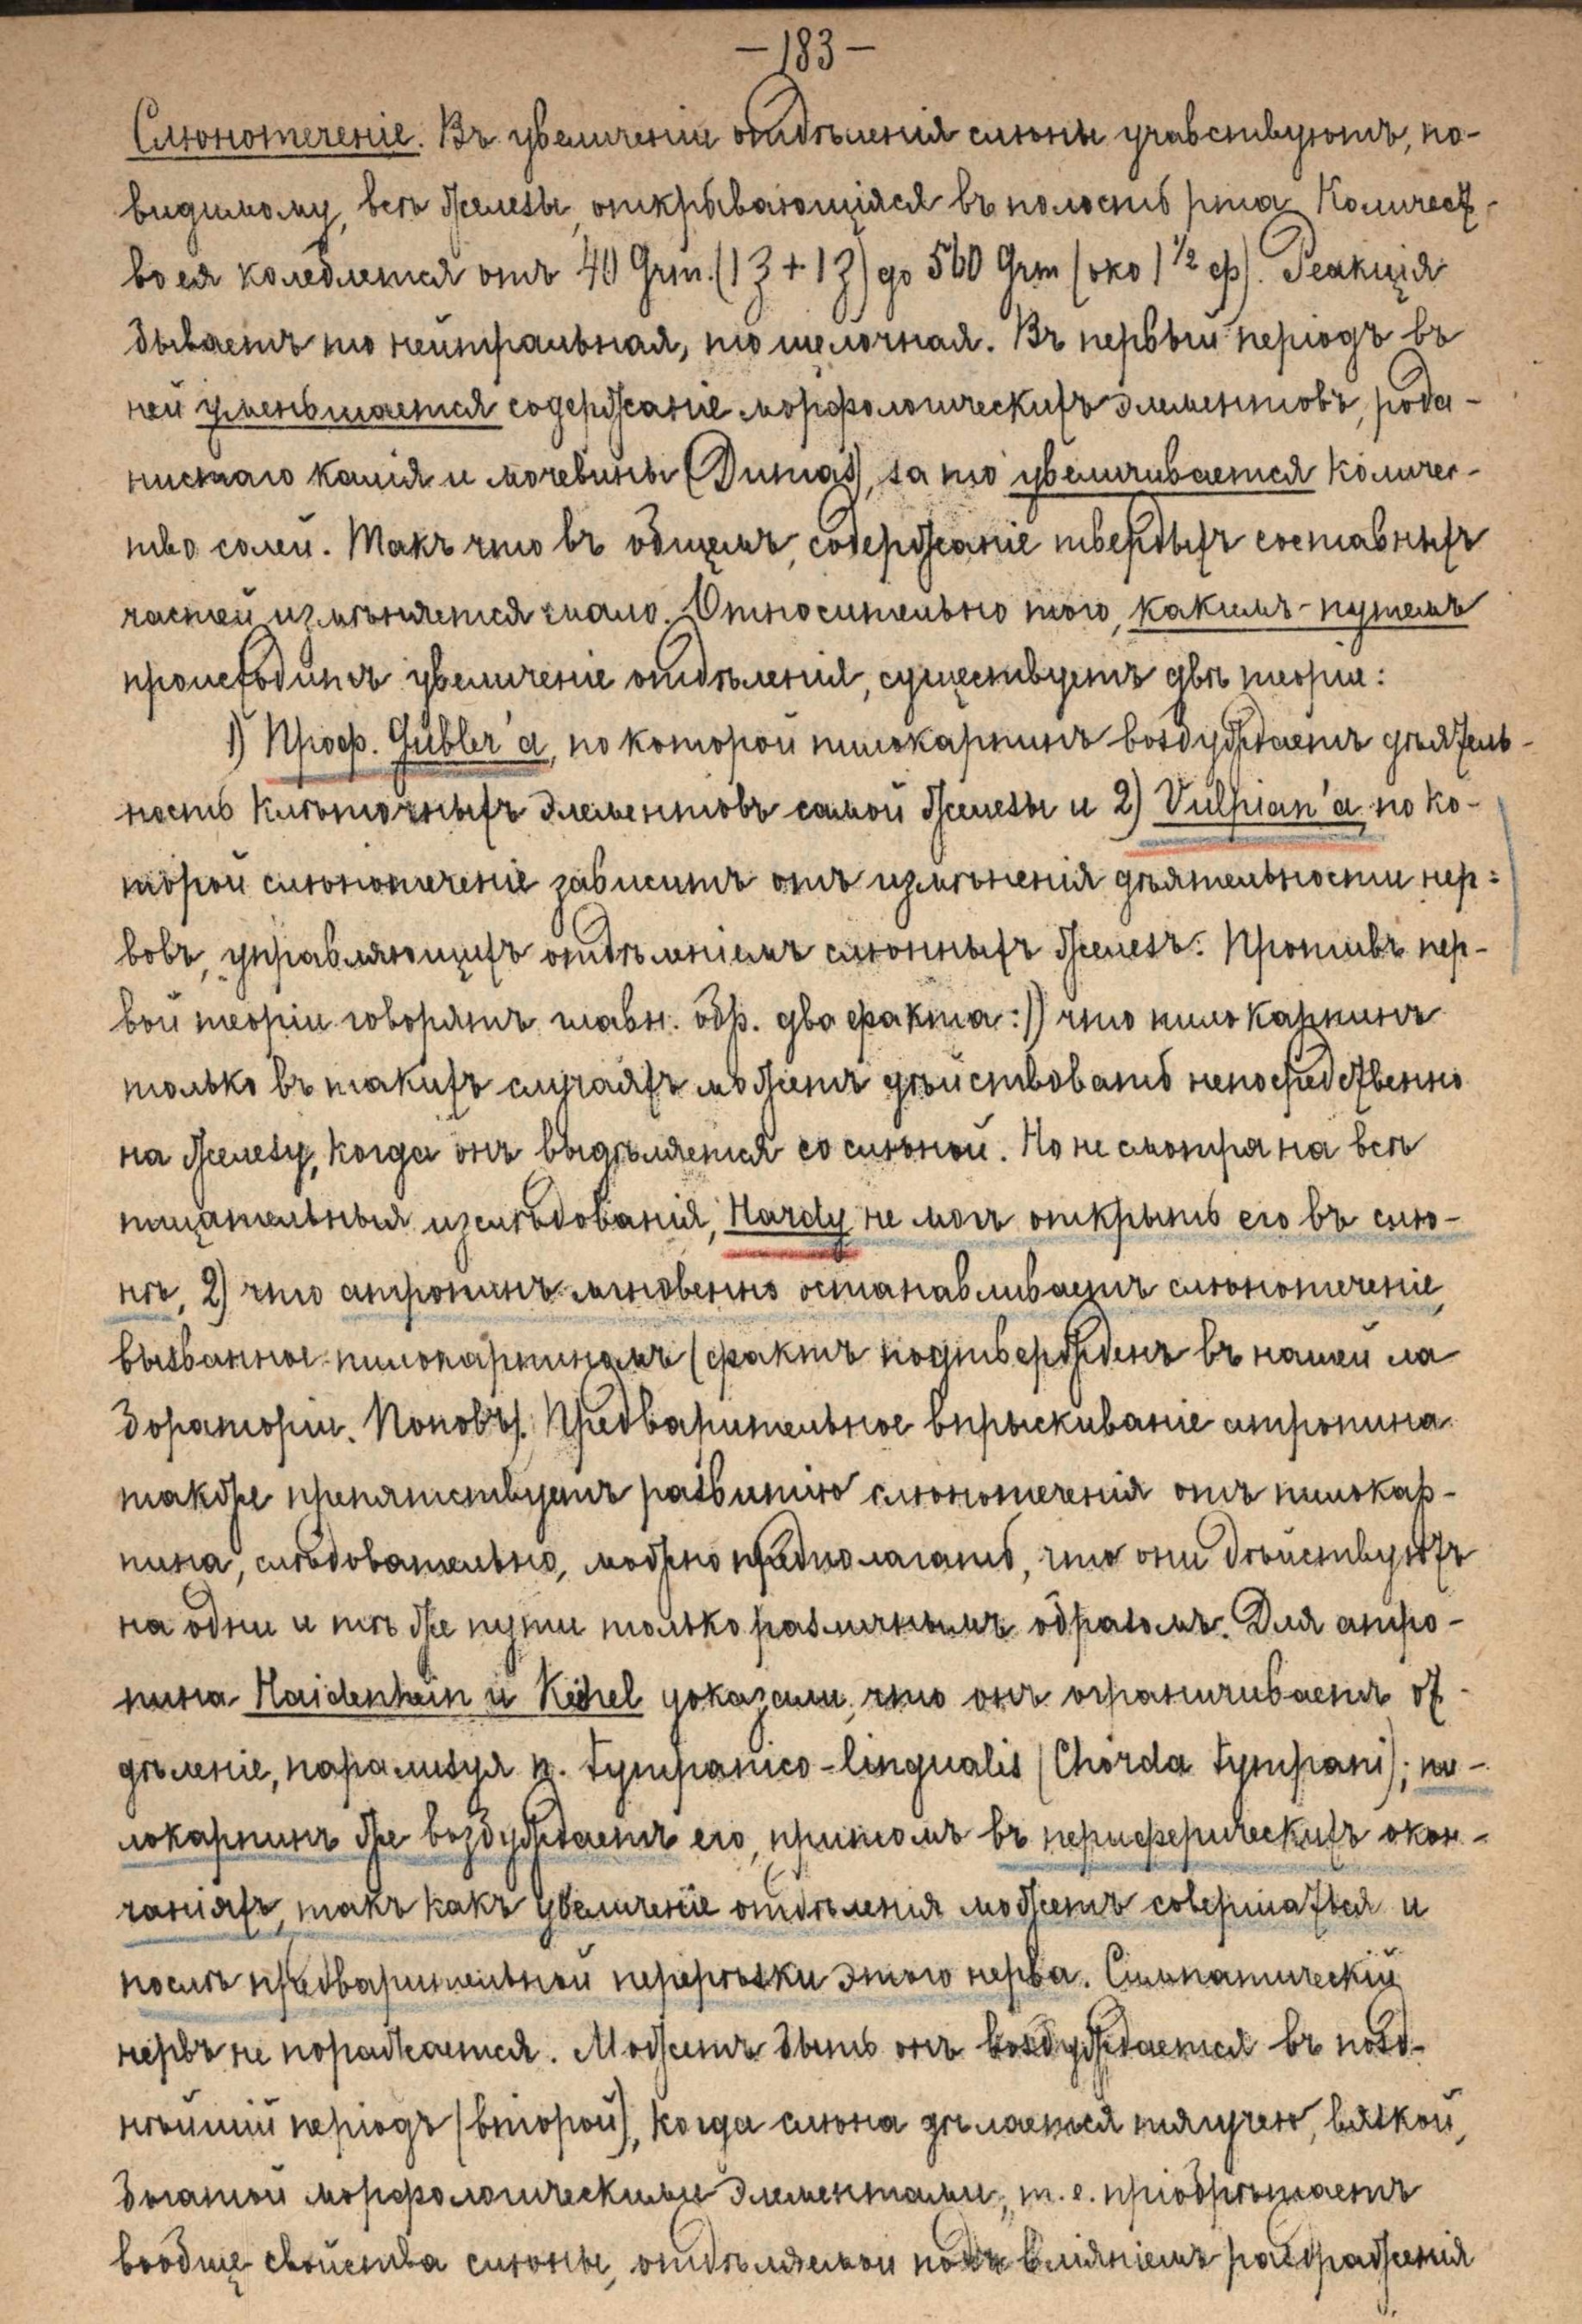 — 183 —
Слюнотеченіе. Въ увеличеніи отдѣленія слюны учавствуютъ, по-
видимому, всѣ железы, открывающіяся въ полость рта. Количест-
во ея колеблется отъ 40 Grm. (1ʒ + 1ʒ) до 560 Grm (око 1 1/2 ф). Реакція
бываетъ то нейтральная, то щелочная. Въ первый періодъ въ
ней уменьшается содержаніе морфологическихъ элементовъ, рода-
нистаго калія и мочевины (Dumas), за то увеличивается количес-
тво солей. Такъ что въ общемъ, содержаніе твердыхъ составныхъ
частей измѣняется мало. Относительно того, какимъ-путемъ
происходитъ увеличеніе отдѣленія, существуетъ двѣ теоріи:
1) Проф. Gübler'a, по которой пилокарпинъ возбуждаетъ дѣятель-
ность клѣточныхъ элементовъ самой железы и 2) Vulpian'a, по ко-
торой слюнотеченіе зависитъ отъ измѣненія дѣятельности нер-
вовъ, управляющихъ отдѣленіемъ слюнныхъ железъ. Противъ пер-
вой теоріи говорятъ главн. обр. два факта: 1) что пилокарпинъ
только въ такихъ случаяхъ можетъ дѣйствовать непосредственно
на железу, когда онъ выдѣляется со слюной. Но не смотря на всѣ
тщательныя изслѣдованія, Hardy не могъ открыть его въ слю-
нѣ, 2) что атропинъ мгновенно останавливаетъ слюнотеченіе,
вызванное пилокарпиномъ (фактъ подтвержденъ въ нашей ла
бораторіи. Поповъ). Предварительное впрыскиваніе атропина
также препятствуетъ развитію слюнотеченія отъ пилокар-
пина, слѣдовательно, можно предполагать, что они дѣйствуютъ
на одни и тѣ же пути только различнымъ образомъ. Для атро-
пина Haidenhein и Keuhel доказали, что онъ ограничиваетъ от-
дѣленіе, парализуя n. tympanico-lingualis (Chorda tympani); пи-
локарпинъ же возбуждаетъ его, притомъ въ периферическихъ окон-
чаніяхъ, такъ какъ увеличеніе отдѣленія можетъ совершаться и
послѣ предварительной перерѣзки этого нерва. Симпатическій
нервъ не поражается. Можетъ быть онъ возбуждается въ позд-
нѣйшій періодъ (второй), когда слюна дѣлается тягучею, вязкой,
богатой морфологическими элементами, т. е. пріобрѣтаетъ
вообще свойства слюны, отдѣляемой подъ вліяніемъ раздраженія